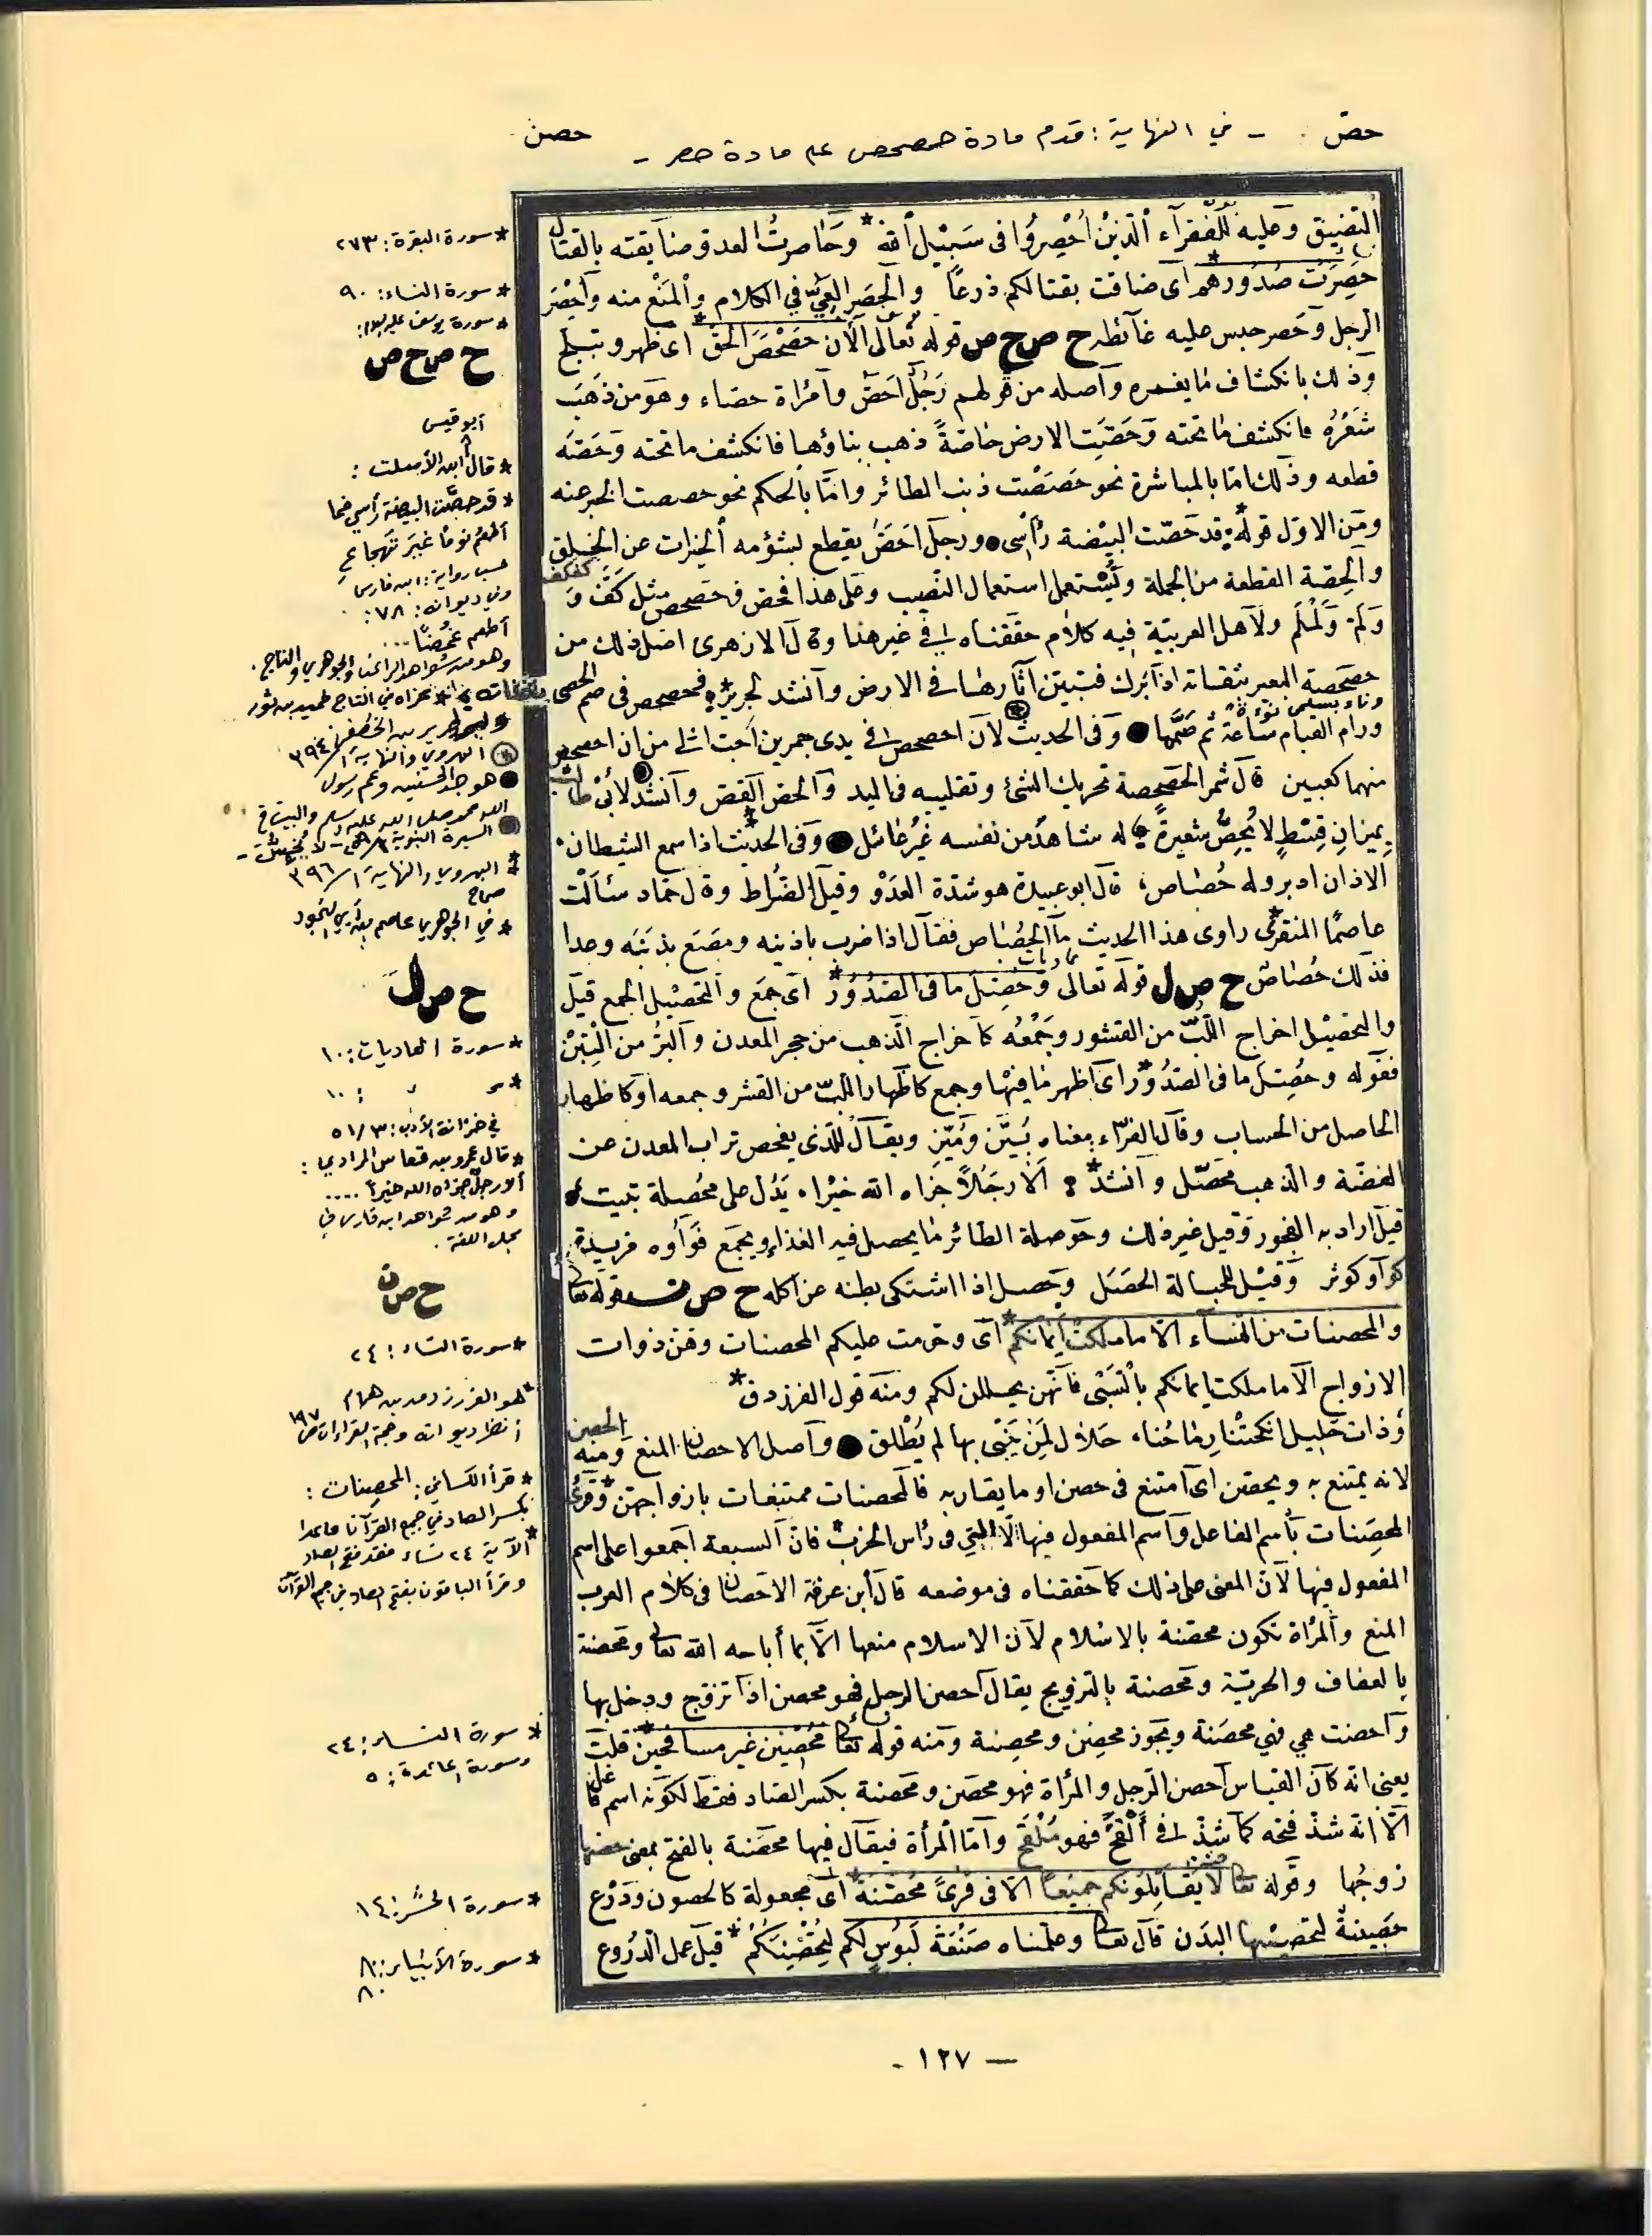 حصّ - في النهاية : قدم مادة حصحص على مادة حصر - حصن
التضييق وعليه للفقرآء الذين أحصروا فى سبيل الله * وحاصرت العدو ضايقته بالقتال
حصرت صدورهم * اى ضاقت بقتالكم ذرعاً والحصر العىّ في الكلام والمنع منه وأحصر
الرجل وحصر حبس عليه غآئطه ح ص ح ص قوله تعالى الآن حصحص الحق * اى ظهر وتبلج
وذلك بانكشاف مايغمره وأصله من قولهم رجل احصّ وامرأة حصاء وهو من ذهب
شعره فانكشف ماتحته وحصّت الارض حاصّةً ذهب بناؤها فانكشف ماتحته وحصّه
قطعه وذلك امّا بالمباشرة نحو حصصت ذنب الطائر وامّا بالحكم نحو حصصت الخبر عنه
ومن الاول قوله * قد حصّت البيضة رأسى ورجل احصّ يقطع بشؤمه الخيرات عن الخلق
والحصّة القطعة من الجملة ويستعمل استعمال النصيب وعلى هذا فحصّ وحصحص مثل كفّ و كفكف
ولمّ ولملم ولاهل العربيّة فيه كلام حققناه فى غير هذا وقال الازهرى اصل ذلك من
حصحصة البعير بثفناته اذا برك فتبين آثارها فى الارض وأنشد لجرير * فحصحص فى صم الحصى بثفناته
ورام القيام ساعة ثم صمّما وفى الحديث لأن احصحص فى يدى جمرين أحبّ الى من ان احصحص
منهما كعبين قال شمر الحصحصة تحريك الشئ وتقليبه فى اليد والحصّ النقص وأنشد لأبى طالب
بميزان قسط لا يحصّ شعيرةً له شاهد من نفسه غير عائل وفى الحديث اذا سمع الشيطان
الاذان ادبر وله حُصاص، قال ابو عبيدة هو شدّة العدو وقيل الضراط وقال حماد سئالت
عاصمًا المنقرى راوى هذا الحديث ما الحصاص فقال اذا ضرب باذنيه ومصع بذنبه وعدا
فذلك حُصاص ح ص ل قوله تعالى وحصّل مافى الصدور * اى جمع والتحصيل الجمع قيل
والتحصيل اخراج اللبّ من القشور وجمعه كاخراج الذهب من حجر المعدن والبرّ من التبن
فقوله وحصّل مافى الصدور اى اظهر مافيها وجمع كاظهار اللبّ من القشر وجمعه اوكاظهار
الحاصل من الحساب وقال الفرّاء معناه بيّن وميّز ويقال للذى يفحص تراب المعدن عن
الفضّة والذهب محصّل وانشد * ألا رجلاً جزاه الله خيرا، يدلّ على محصلة تبيت
قيل اراد به الفجور وقيل غير ذلك وحوصلة الطائر مايحصل فيه الغذاء ويجمع فواوه مزيدة
كواو كوثر وقيل للحبالة الحصل وحصل اذا اشتكى بطنه عن اكله ح ص ن قوله تعالى
والمحصنات من النسآء الا ماملكت أيمانكم * اى وحرمت عليكم المحصنات وهنّ ذوات
الازواج الا ما ملكت ايمانكم بالسبى فانهنّ يحللن لكم ومنه قول الفرزدق *
وذات حليل انكحتنا رماحنا، حلال لمن يبنى بها لم تطلق وأصل الاحصان المنع ومنه الحصن
لانه يمتنع به ويحصن اى امتنع فى حصن او مايقاربه فالمحصنات ممتنعات بازواجهن وقرئ
المحصنات باسم الفاعل واسم المفعول فيها الا التى فى رأس الحزب فان السبعة اجمعوا على اسم
المفعول فيها لأن المعنى على ذلك كما حققناه فى موضعه قال ابن عرفة الاحصان فى كلام العرب
المنع والمرأة تكون محصنة بالاسلام لأن الاسلام منعها الّا بما أباحه الله تعالى ومحصنة
بالعفاف والحريّة ومحصنة بالتزويج يقال أحصن الرجل فهو محصن اذا تزوّج ودخل بها
وأحصنت هى فهي محصنة ويجوز محصن ومحصنة ومنه قوله تعالى محصنين غير مسافحين قلت
يعنى انه كان القياس أحصن الرجل والمرأة فهو محصن ومحصنة بكسر الصاد فقط لكونه اسم فاعل
الّا انه شذّ فتحه كما شذّ فى ألقح فهو ملقح وأمّا المرأة فيقال فيها محصنة بالفتح بمعنى حصنها
زوجها وقوله تعالى لا يقاتلونكم جميعا الّا فى قرىً محصّنة * اى مجعولة كالحصون ودرع
حصينة لتحصينها البدن قال تعالى وعلّمناه صنعة لبوس لكم لتحصنكم * قيل عمل الدروع
* سورة البقرة : ٢٧٣
* سورة النساء : ٩٠
* سورة يوسف عليه السلام :
ح ص ح ص
أبو قيس
* قال ابن الأسلت :
* قد حصّت البيضة رأسي فما
أطعم نومًا غير تهجاع
حسب رواية : ابن فارس
وفي ديوانه : ٧٨ :
أطعم غمضًا ...
وهو من شواهد الراغب والجوهري والتاج .
الهروي والنهاية ١/٣٩٤
هو جد الحسنين وعم رسول
الله محمد صلى الله عليه وسلم والبيت في
* الهروي والنهاية ١/٣٩٦
* في الجوهري عاصم بن أبي النجود
ح ص ل
* سورة العاديات : ١٠
في خزانة الأدب : ٥١/٣
* قال عمرو بن قعاس المرادي :
ألا رجل جزاه الله خيراً ....
وهو من شواهد ابن فارس في
مجمل اللغة .
ح ص ن
* سورة النساء : ٢٤
* هو الفرزدق همام بن
انظر ديوانه وحجة القراءات ص ١٩٧
* قرأ الكسائي : المحصنات :
بكسر الصاد في جميع القرآن ما عدا
الآية ٢٤ نساء فقد فتح الصاد
وقرأ الباقون بفتح الصاد في جميع القرآن
* سورة النساء : ٢٤
وسورة المائدة : ٥
* سورة الحشر : ١٤
* سورة الأنبياء : ٨٠
- ١٢٧ -